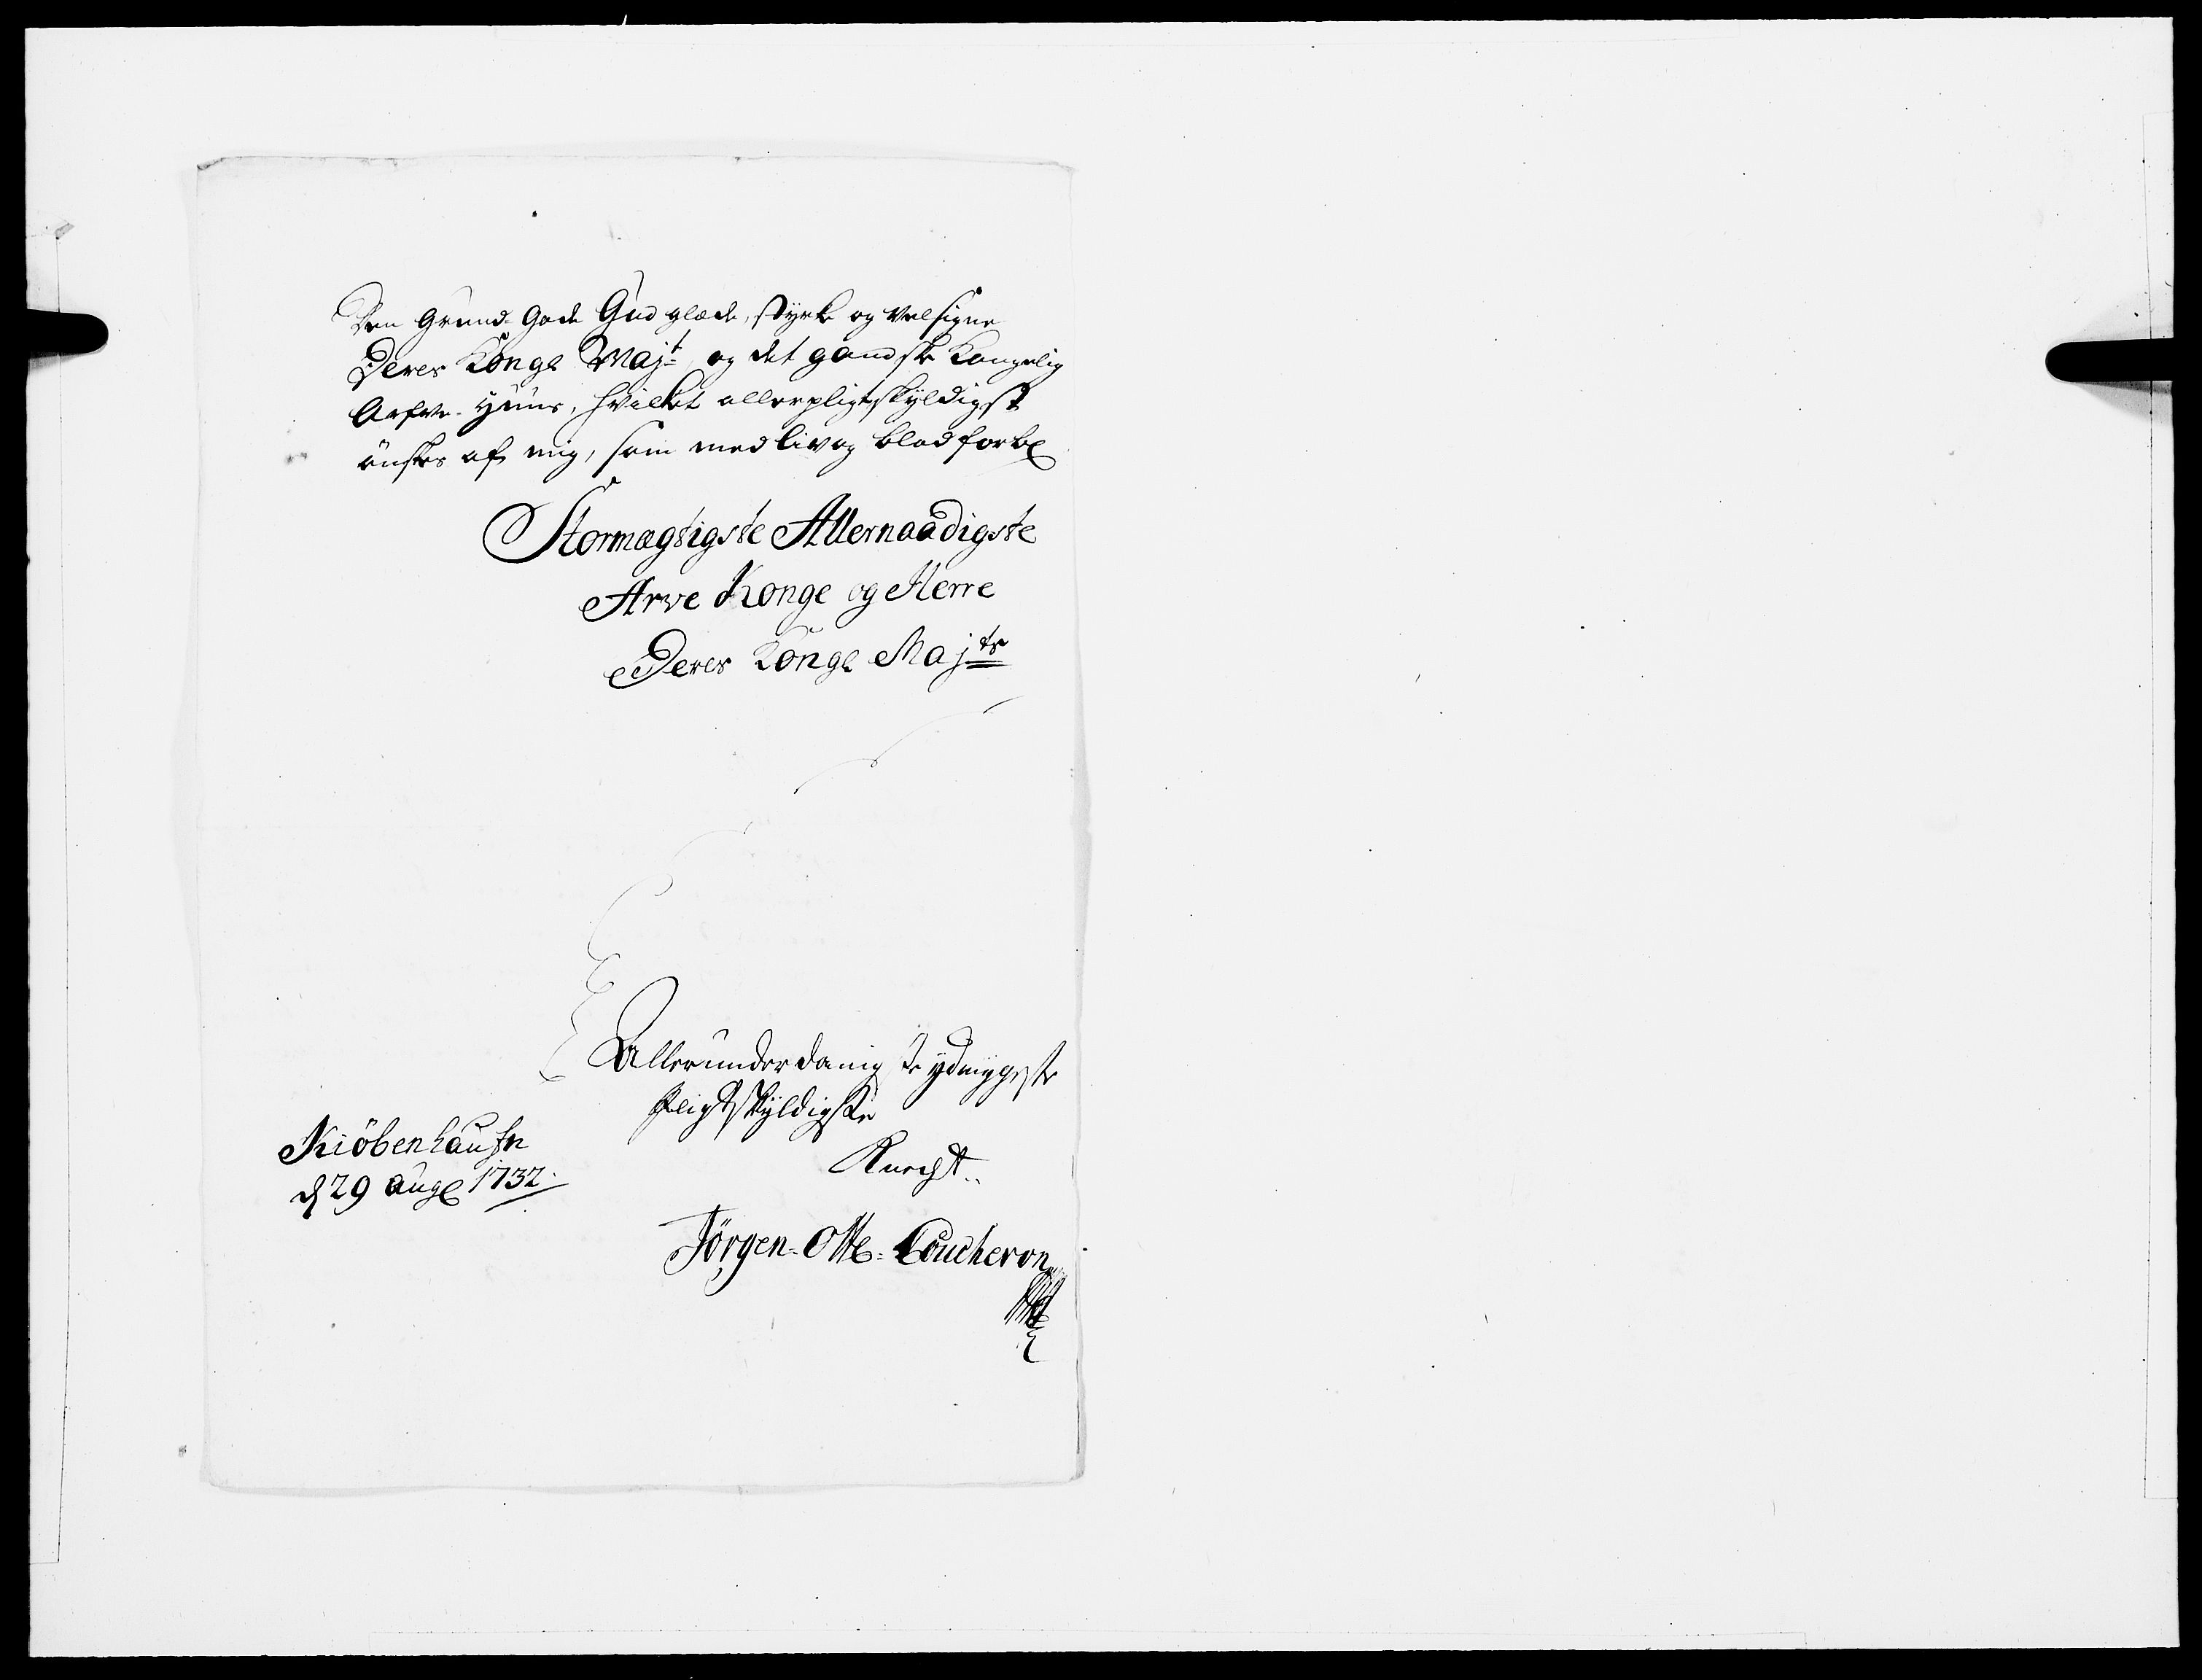 Den Grund-Gode Gud glæde, styrke og velsigne
Deres Kongl Majt og det gandske Kongelig
Arfve-Huus, hvilket allerpligtskyldigst
ønskes af mig, som med liv og blod forbl
Stormægtigste Allernaadigste
Arve Konge og Herre
Deres Kongl Majts
Allerunderdanigste ydmygeste
Pligtskyldigste
Knecht..
Kiöbenhaufn
d 29 Aug 1732.
Jörgen-Otte-Coucheron